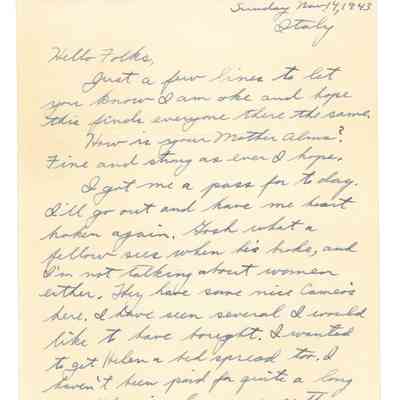 Sunday Nov 14, 1943
Italy
Hello Folks,
Just a few lines to let
you know I am oke and hope
this finds everyone there the same.
How is your Mother Alma?
Fine and strong as ever I hope.
I got me a pass for to day.
I'll go out and have me heart
broken again. Gosh what a
fellow sees when his broke, and
I'm not talking about women
either. They have some nice Cameo's
here. I have seen several I would
like to have bought. I wanted
to get Helen a bed spread too. I
haven't been paid for quite a long